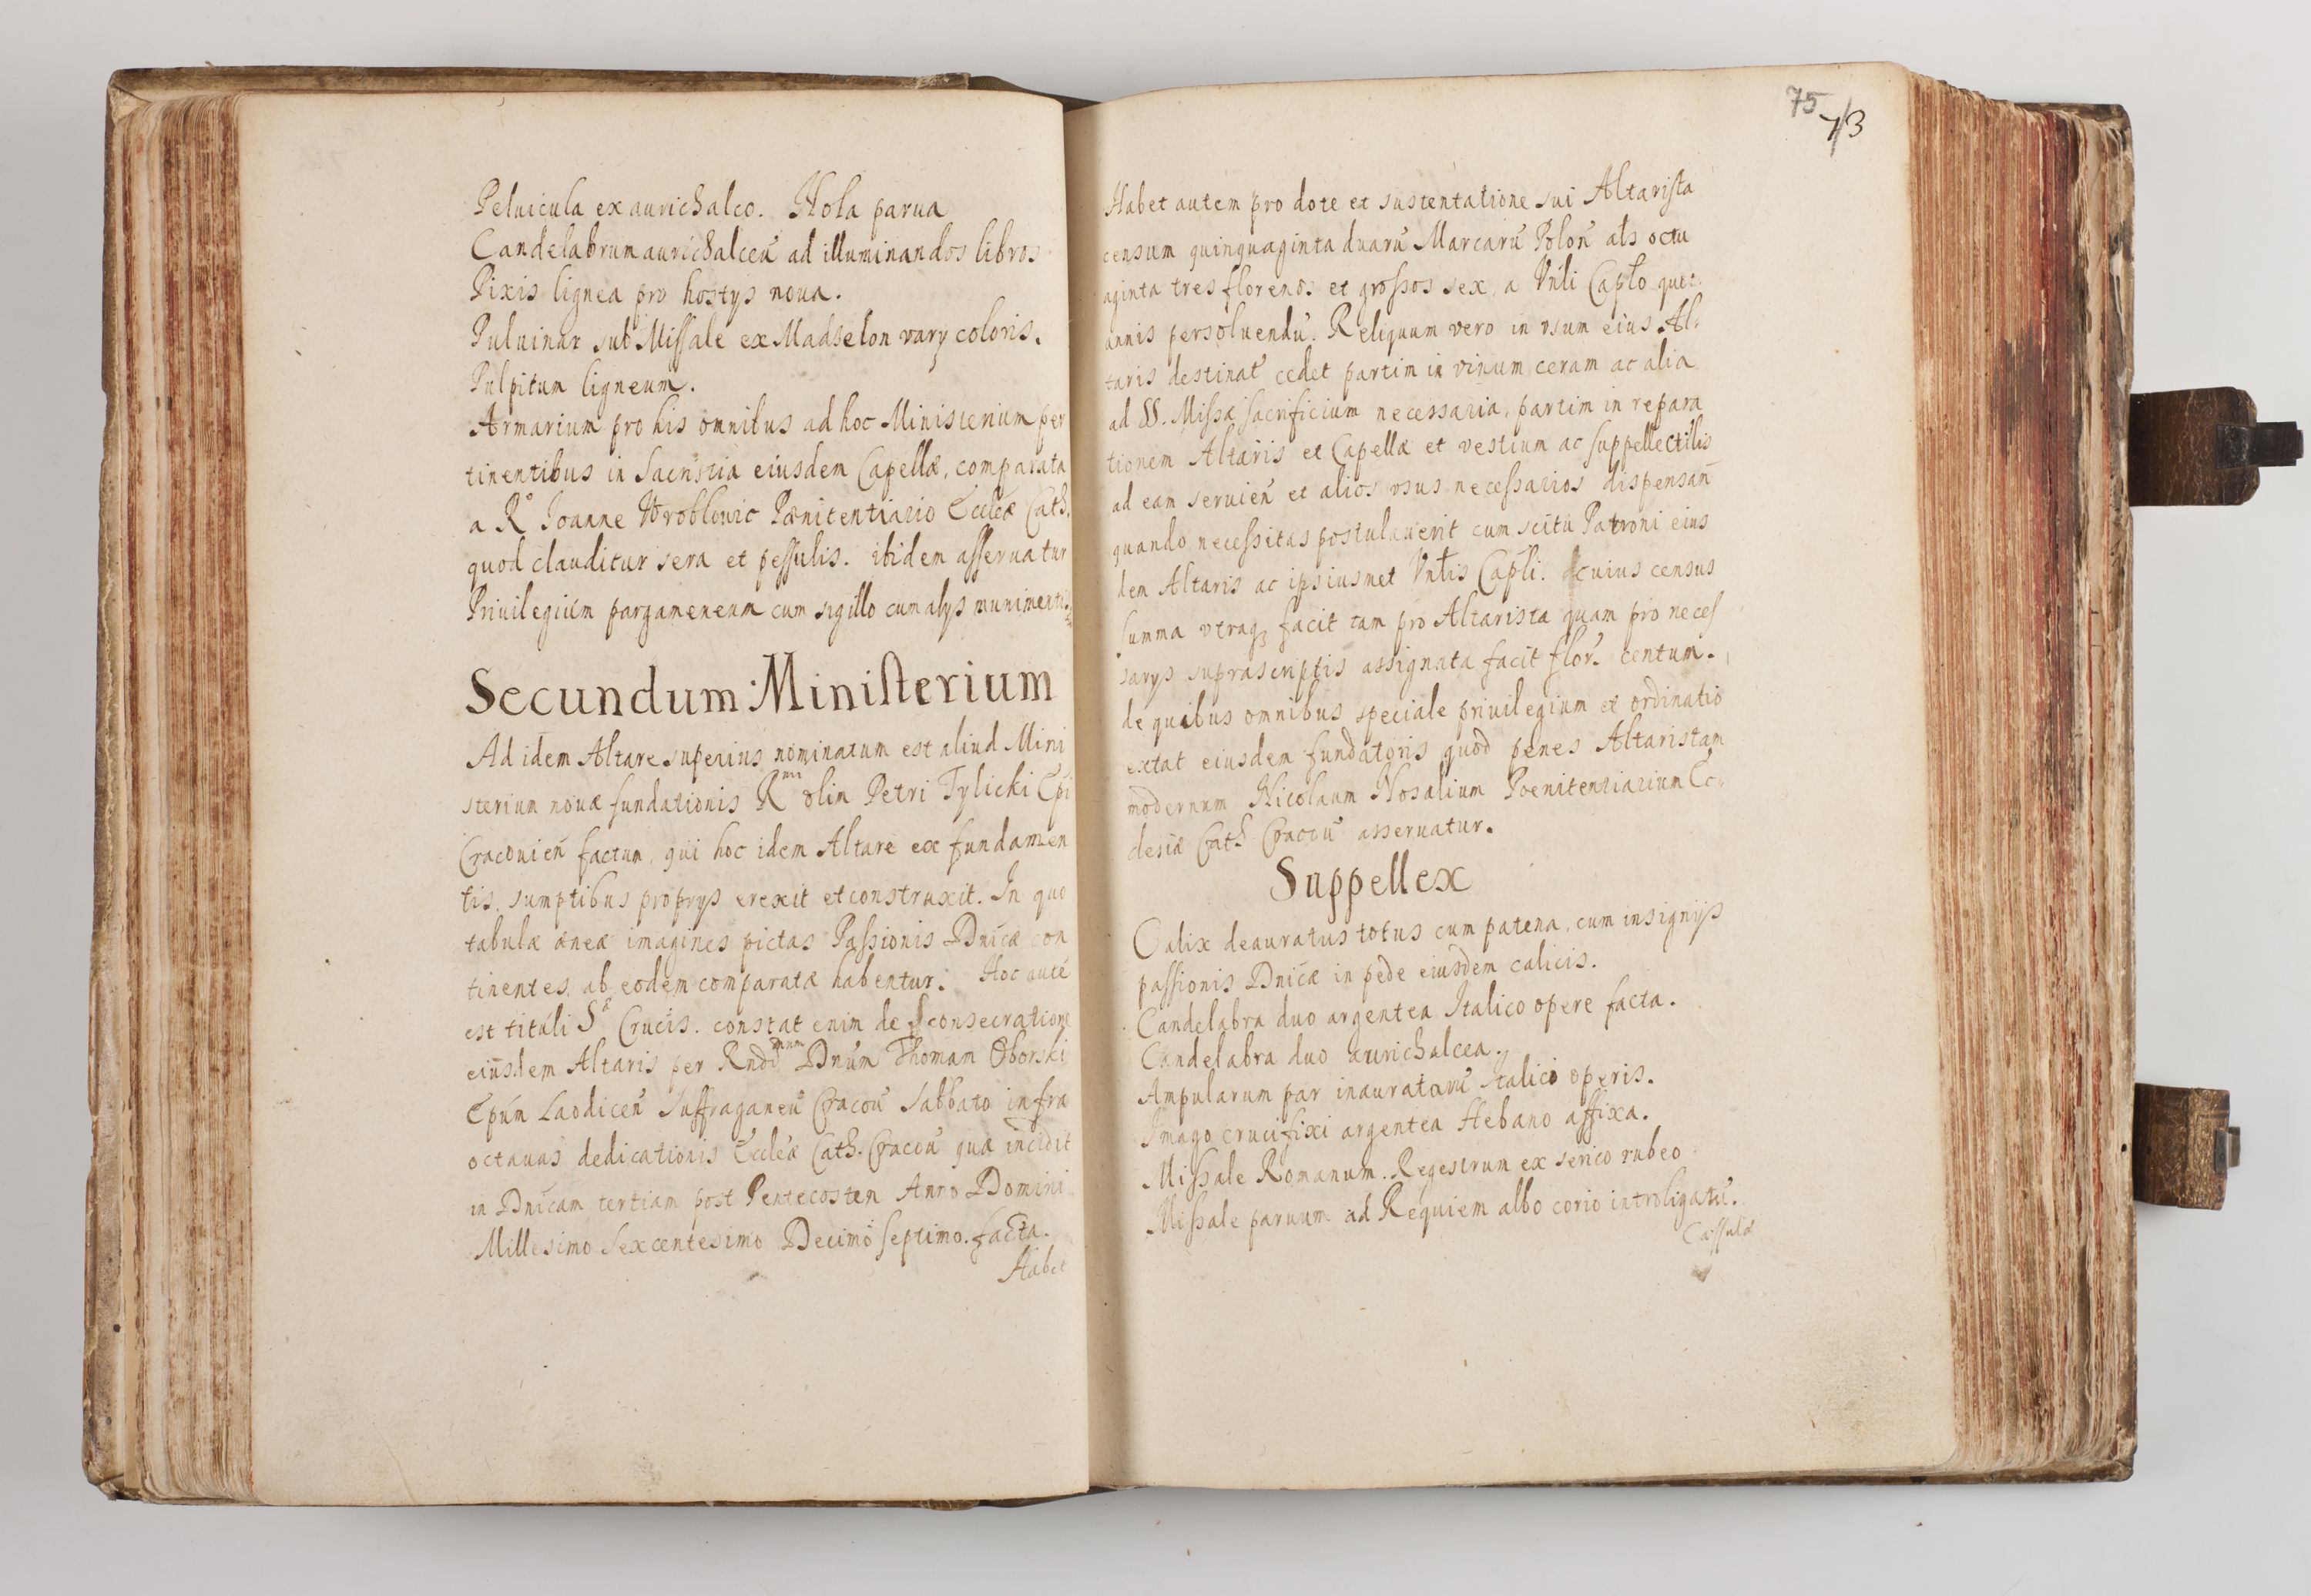 Peluicula ex aurichalco. Nola parua
Candelabrum aurichalceū ad illuminandos libros
Pixis lignea pro hostys noua.
Puluinar sub Missale ex Madselon vary coloris.
Pulpitum ligneum.
Armarium pro his omnibus ad hoc Ministerium per
tinentibus in Sacristia eiusdem Capellæ, comparata
a R° Joanne Wroblowic Pænitentiario Eccleæ Cath.
quod clauditur sera et pessulis. ibidem asseruatur
Priuilegium pargameneum cum sigillo cum alys munimentis
Secundum Ministerium
Ad idem Altare superius nominatum est aliud Mini
sterium nouæ fundationis R^mi olim Petri Tylicki Epi
Cracouien̄ factum, qui hoc idem Altare ex fundamen
tis, sumptibus proprys erexit et construxit. In quo
tabulæ æneæ imagines pictas Passionis Dnicæ con
tinentes, ab eodem comparatæ habentur. Hoc autē
est tituli S^æ Crucis. constat enim de consecratione
eiusdem Altaris per Rndd^mum Dnūm Thomam Oborski
Epūm Laodiceñ Suffraganeū Cracoū Sabbato infra
octauas dedicationis Eccleæ Cath. Cracoū quæ incidit
in Dnīcam tertiam post Pentecosten Anno Domini
Millesimo Sexcentesimo Decimo septimo. facta.
Habet
75 73
Habet autem pro dote et sustentatione sui Altarista
censum quinquaginta duarū Marcarū Polon̄ als octu
aginta tres florenos et grossos sex, a Vnli Caplo quot
annis persoluendū. Reliquum vero in vsum eius Al-
taris destinat̄ cedet partim in vinum ceram ac alia
ad SS. Missæ sacrificium necessaria, partim in repara
tionem Altaris et Capellæ et vestium ac suppellectilis
ad eam seruien̄ et alios vsus necessarios dispensan̄
quando necessitas postulauerit cum scitu Patroni eius
dem Altaris ac ipsiusmet Vnlis Capli. cuius census
summa vtraq₃ facit tam pro Altarista quam pro neces
sarys suprascriptis assignata facit flor. centum.
de quibus omnibus speciale priuilegium et ordinatio
extat eiusdem fundatoris quod penes Altaristam
modernum Nicolaum Nosalium Poenitentiarium Ec-
clesiæ Cath Cracoū asseruatur.
Suppellex
Calix deauratus totus cum patena, cum insignijs
passionis Dnicæ in pede eiusdem calicis.
Candelabra duo argentea Italico opere facta.
Candelabra duo aurichalcea.
Ampularum par inauratarū Italici operis.
Imago crucifixi argentea Hebano affixa.
Missale Romanum. Regestrum ex serico rubeo
Missale paruum ad Requiem albo corio introligatū.
Cassulæ